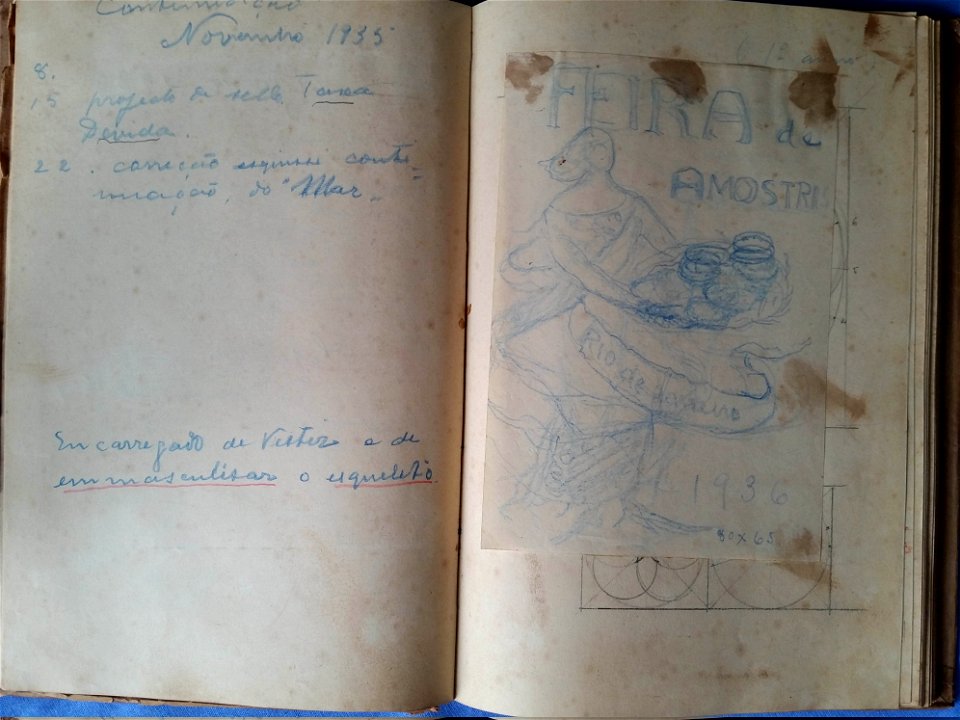 Continuação
Novembro 1935
8.
15 projecto de sello Taxa
Devida.
22. correcção esquisse conti-
nuação, do "Mar"
Encarregado de Vestir e de
emmasculisar o esqueleto
1º anno
FEIRA de
AMOSTRAS
Rio de Janeiro
1936
80x65
6
5